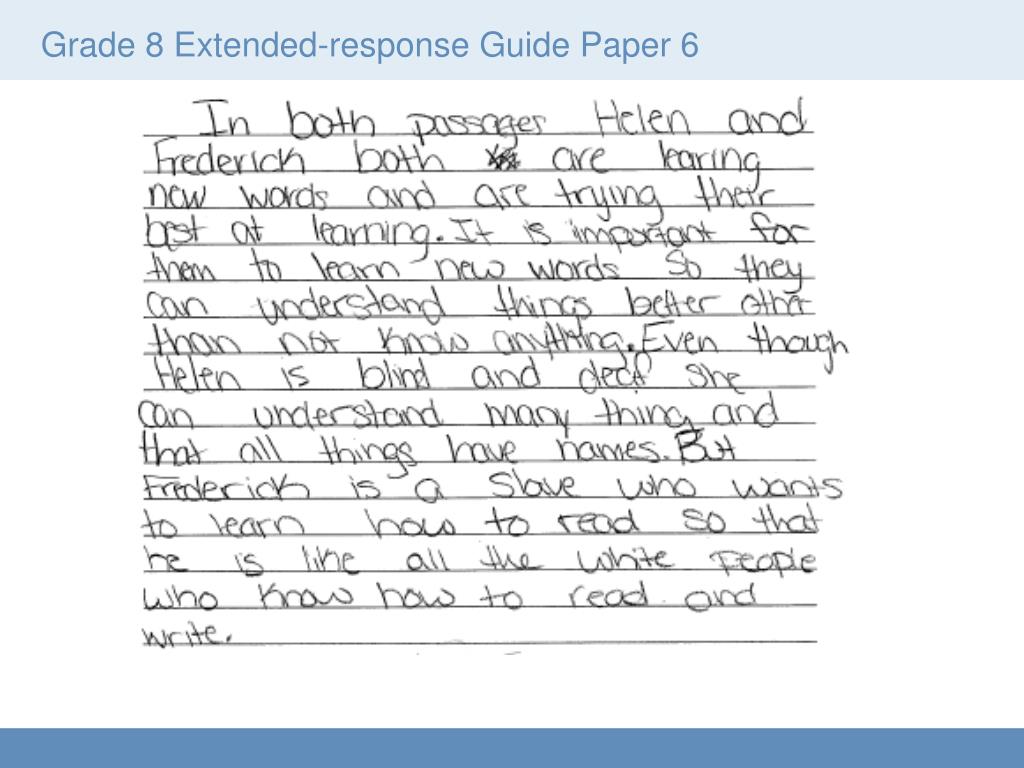 Grade 8 Extended-response Guide Paper 6
In both passages Helen and
Frederick both are learing
new words and are trying their
best at learning. It is important for
them to learn new words so they
can understand things better other
than not know anything. Even though
Helen is blind and deaf she
can understand many thing and
that all things have names. But
Frederick is a slave who wants
to learn how to read so that
he is like all the white people
who know how to read and
write.